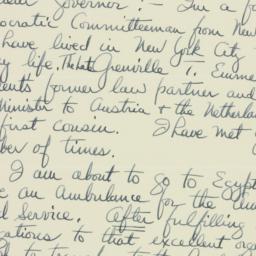 Governor: - I'm a fo
ocratic Committeeman from New
have lived in New York City
y life. The late Grenville T. Emme
ents former law partner and
Minister to Austria & the Netherlan
first cousin. I have met
ber of times.
I am about to go to Egypt
e an Ambulance for the Am
d Service. After fulfilling
gations to that excellent org